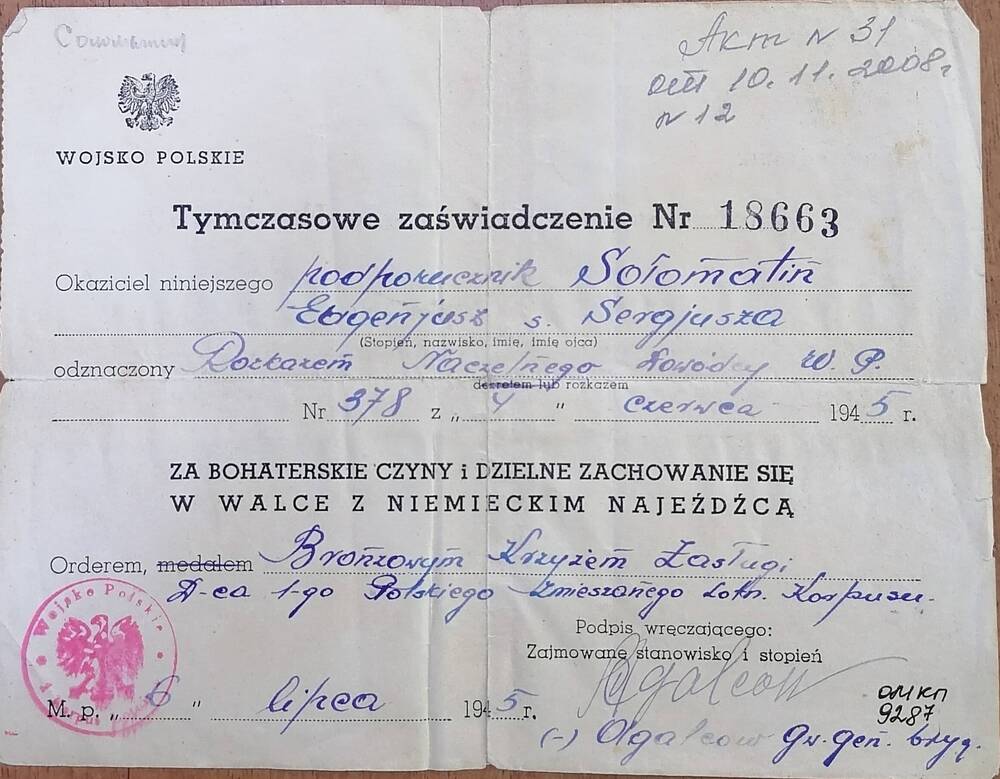 Акт № 31
от 10.11.2008 г
№ 12
WOJSKO POLSKIE
Tymczasowe zaświadczenie Nr 18663
Okaziciel niniejszego podporucznik Sołomatin
Eugenjusz s. Sergjusza
(Stopień, nazwisko, imię, imię ojca)
odznaczony Rozkazem Naczelnego Dowódcy W. P.
dekretem lub rozkazem
Nr 378 z „ 4 " czerwca 1945 r.
ZA BOHATERSKIE CZYNY i DZIELNE ZACHOWANIE SIĘ
W WALCE Z NIEMIECKIM NAJEŹDŹCĄ
Orderem, medalem Bronzowym Krzyżem Zasługi
D-ca 1-go Polskiego Zmieszanego Lotn. Korpusu.
Wojsko Polskie
Podpis wręczającego:
Zajmowane stanowisko i stopień
M. p. „ 6 " lipca 1945 r.
ОМКП
9287
(-) Agalcow Gw. gen. bryg.